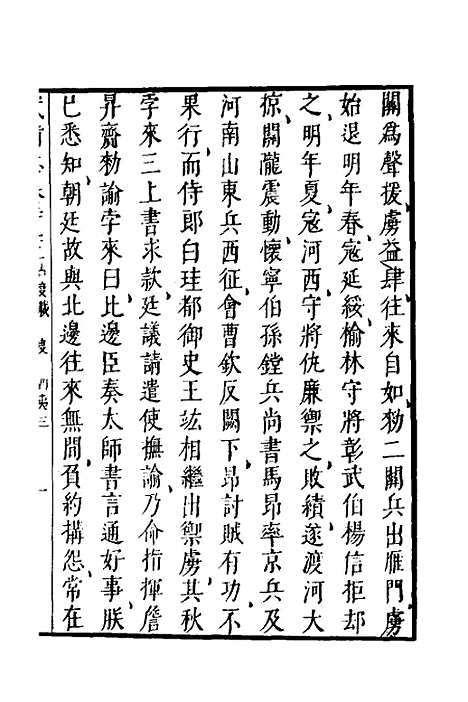 關爲聲援虜益肆往來自如勑二關兵出雁門虜
始退明年春寇延綏榆林守將彰武伯楊信拒却
之明年夏寇河西守將仇廉禦之敗績遂渡河大
掠關隴震動懷寧伯孫鏜兵尚書馬昂率京兵及
河南山東兵西征會曹欽反闕下昂討賊有功不
果行而侍郎白珪都御史王竑相繼出禦虜其秋
孛來三上書求款廷議請遣使撫諭乃命指揮詹
昇齎勑諭孛來曰比邊臣奏太師書言通好事朕
已悉知朝廷故與北邊往來無間負約搆怨常在